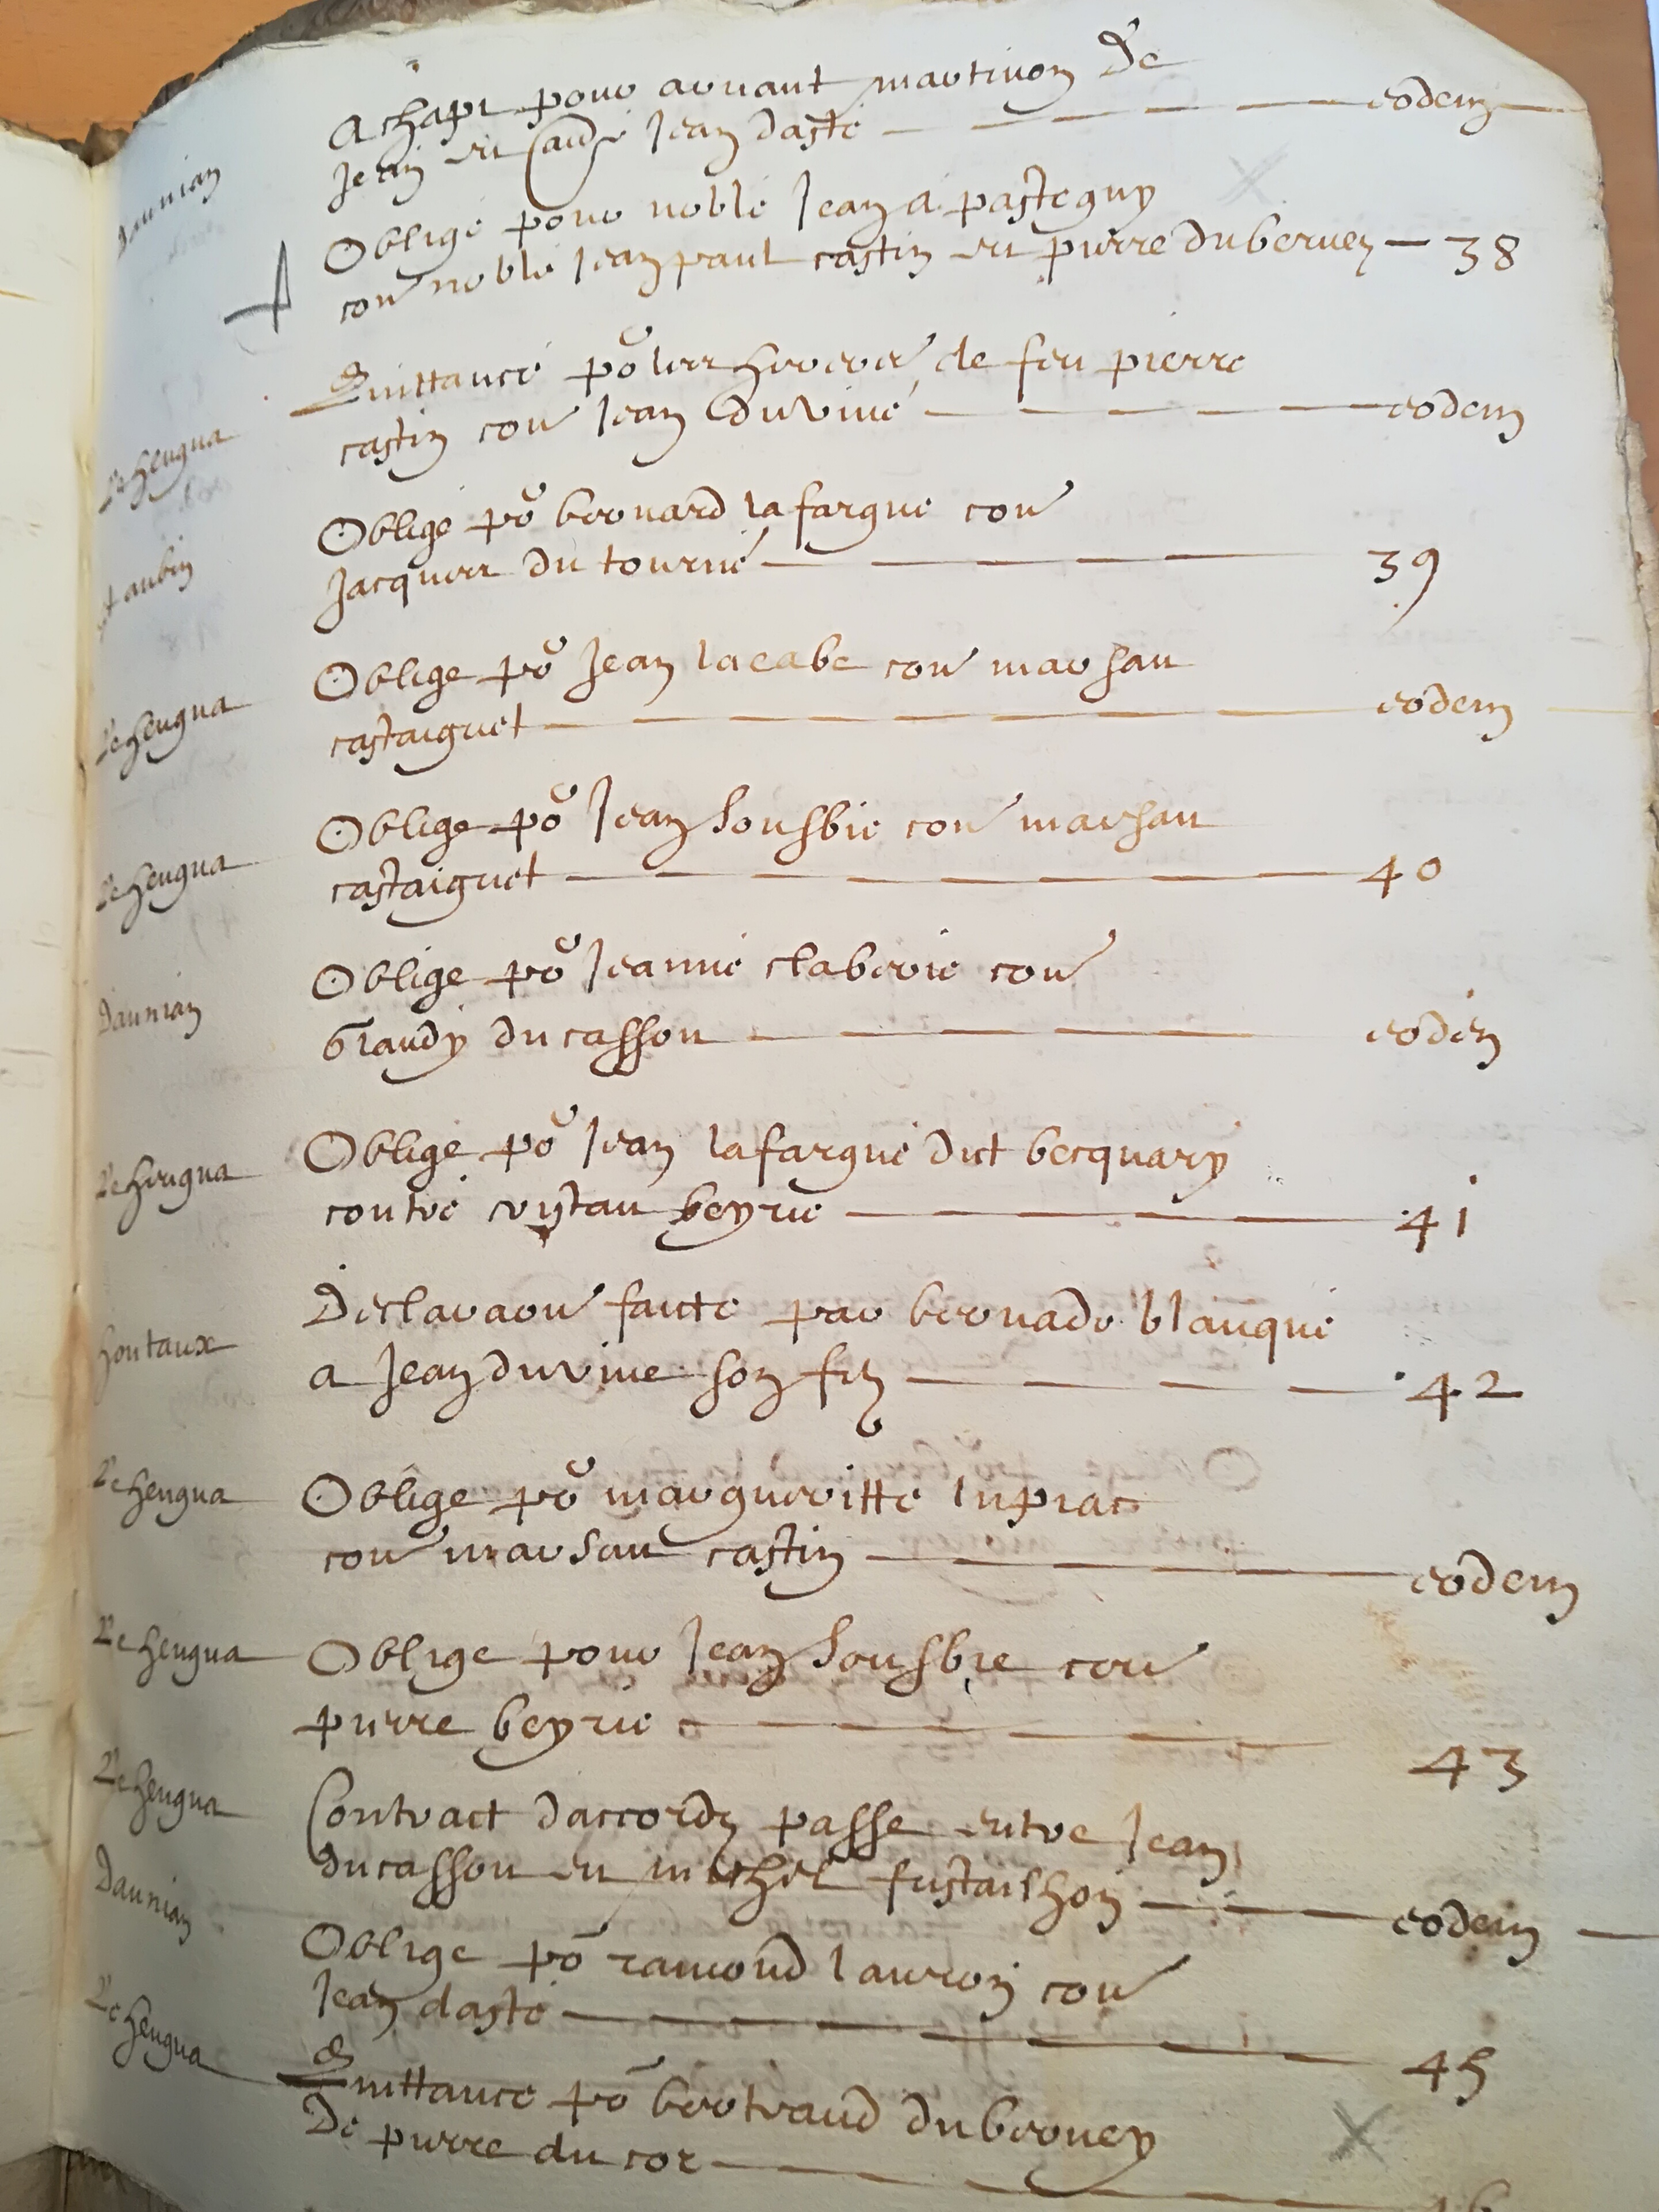 Achapt pour arnaut martinon De
Jean et Jean daste eodem
Daunian
Oblige pour noble Jean a pasteguy
con noble Jean paul castin et pierre duberney 38
Quittance po les hereres de feu pierre
castin con Jean Duvine eodem
Lehengua
Oblige po bernard lafargue con
Jacques du tourne 39
st aubin
Oblige po Jean lacabe con marsau
castaignet eodem
Lehengua
Oblige po Jean Sousbie con marsau
castaignet 40
Lehengua
Oblige po Jeanne claberie con
Graudy du casson eodem
Daunian
Oblige po Jean lafargue dict becquary
contre beyrie 41
Lehengua
Declaraon faicte par bernade blanque
a Jean duvine son filz 42
hontaux
Oblige po margueritte luprat
con marsau castin eodem
Lehengua
Oblige pour Jean Sousbie con
pierre beyrie 43
Lehengua
Contract daccordz passe entre Jean
ducassou et michel fustailhon eodem
Lehengua
Oblige po ramond lauron con
Jean daste 45
Daunian
Quittance po bertrand duberney
De pierre du cor
Lehengua